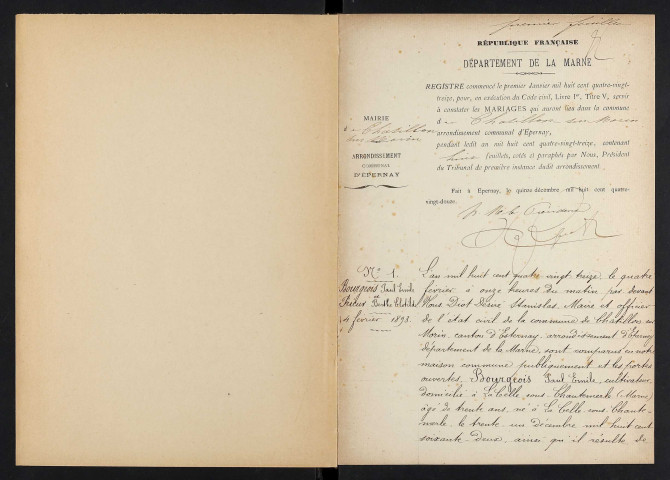 premier feuillet
RÉPUBLIQUE FRANÇAISE
DÉPARTEMENT DE LA MARNE
REGISTRE commencé le premier Janvier mil huit cent quatre-vingt-
treize, pour, en exécution du Code civil, Livre Ier, Titre V, servir
à constater les MARIAGES qui auront lieu dans la commune
de Chatillon sur Morin
arrondissement communal d'Epernay,
pendant ledit an mil huit cent quatre-vingt-treize, contenant
feuillets, cotés et paraphés par Nous, Président
du Tribunal de première instance dudit arrondissement.
Fait à Epernay, le quinze décembre mil huit cent quatre-
vingt-douze.
MAIRIE
de Chatillon
sur Morin
ARRONDISSEMENT
COMMUNAL
D'EPERNAY
No 1.
Bourgeois Paul Emile
Berthe Clotilde
4 février 1893.
L'an mil huit cent quatre vingt treize, le quatre
février à onze heures du matin par devant
Nous Driot Désiré Stanislas, Maire et officier
de l'état civil de la commune de Chatillon sur
Morin, canton d'Esternay, arrondissement d'Epernay
département de la Marne, sont comparus en notre
maison commune publiquement et les portes
ouvertes, Bourgeois Paul Emile, cultivateur
domicilié à La Celle-sous-Chantemerle (Marne)
âgé de trente ans, né à La Celle-sous-Chante-
merle le trente-un décembre mil huit cent
soixante-deux, ainsi qu'il résulte de